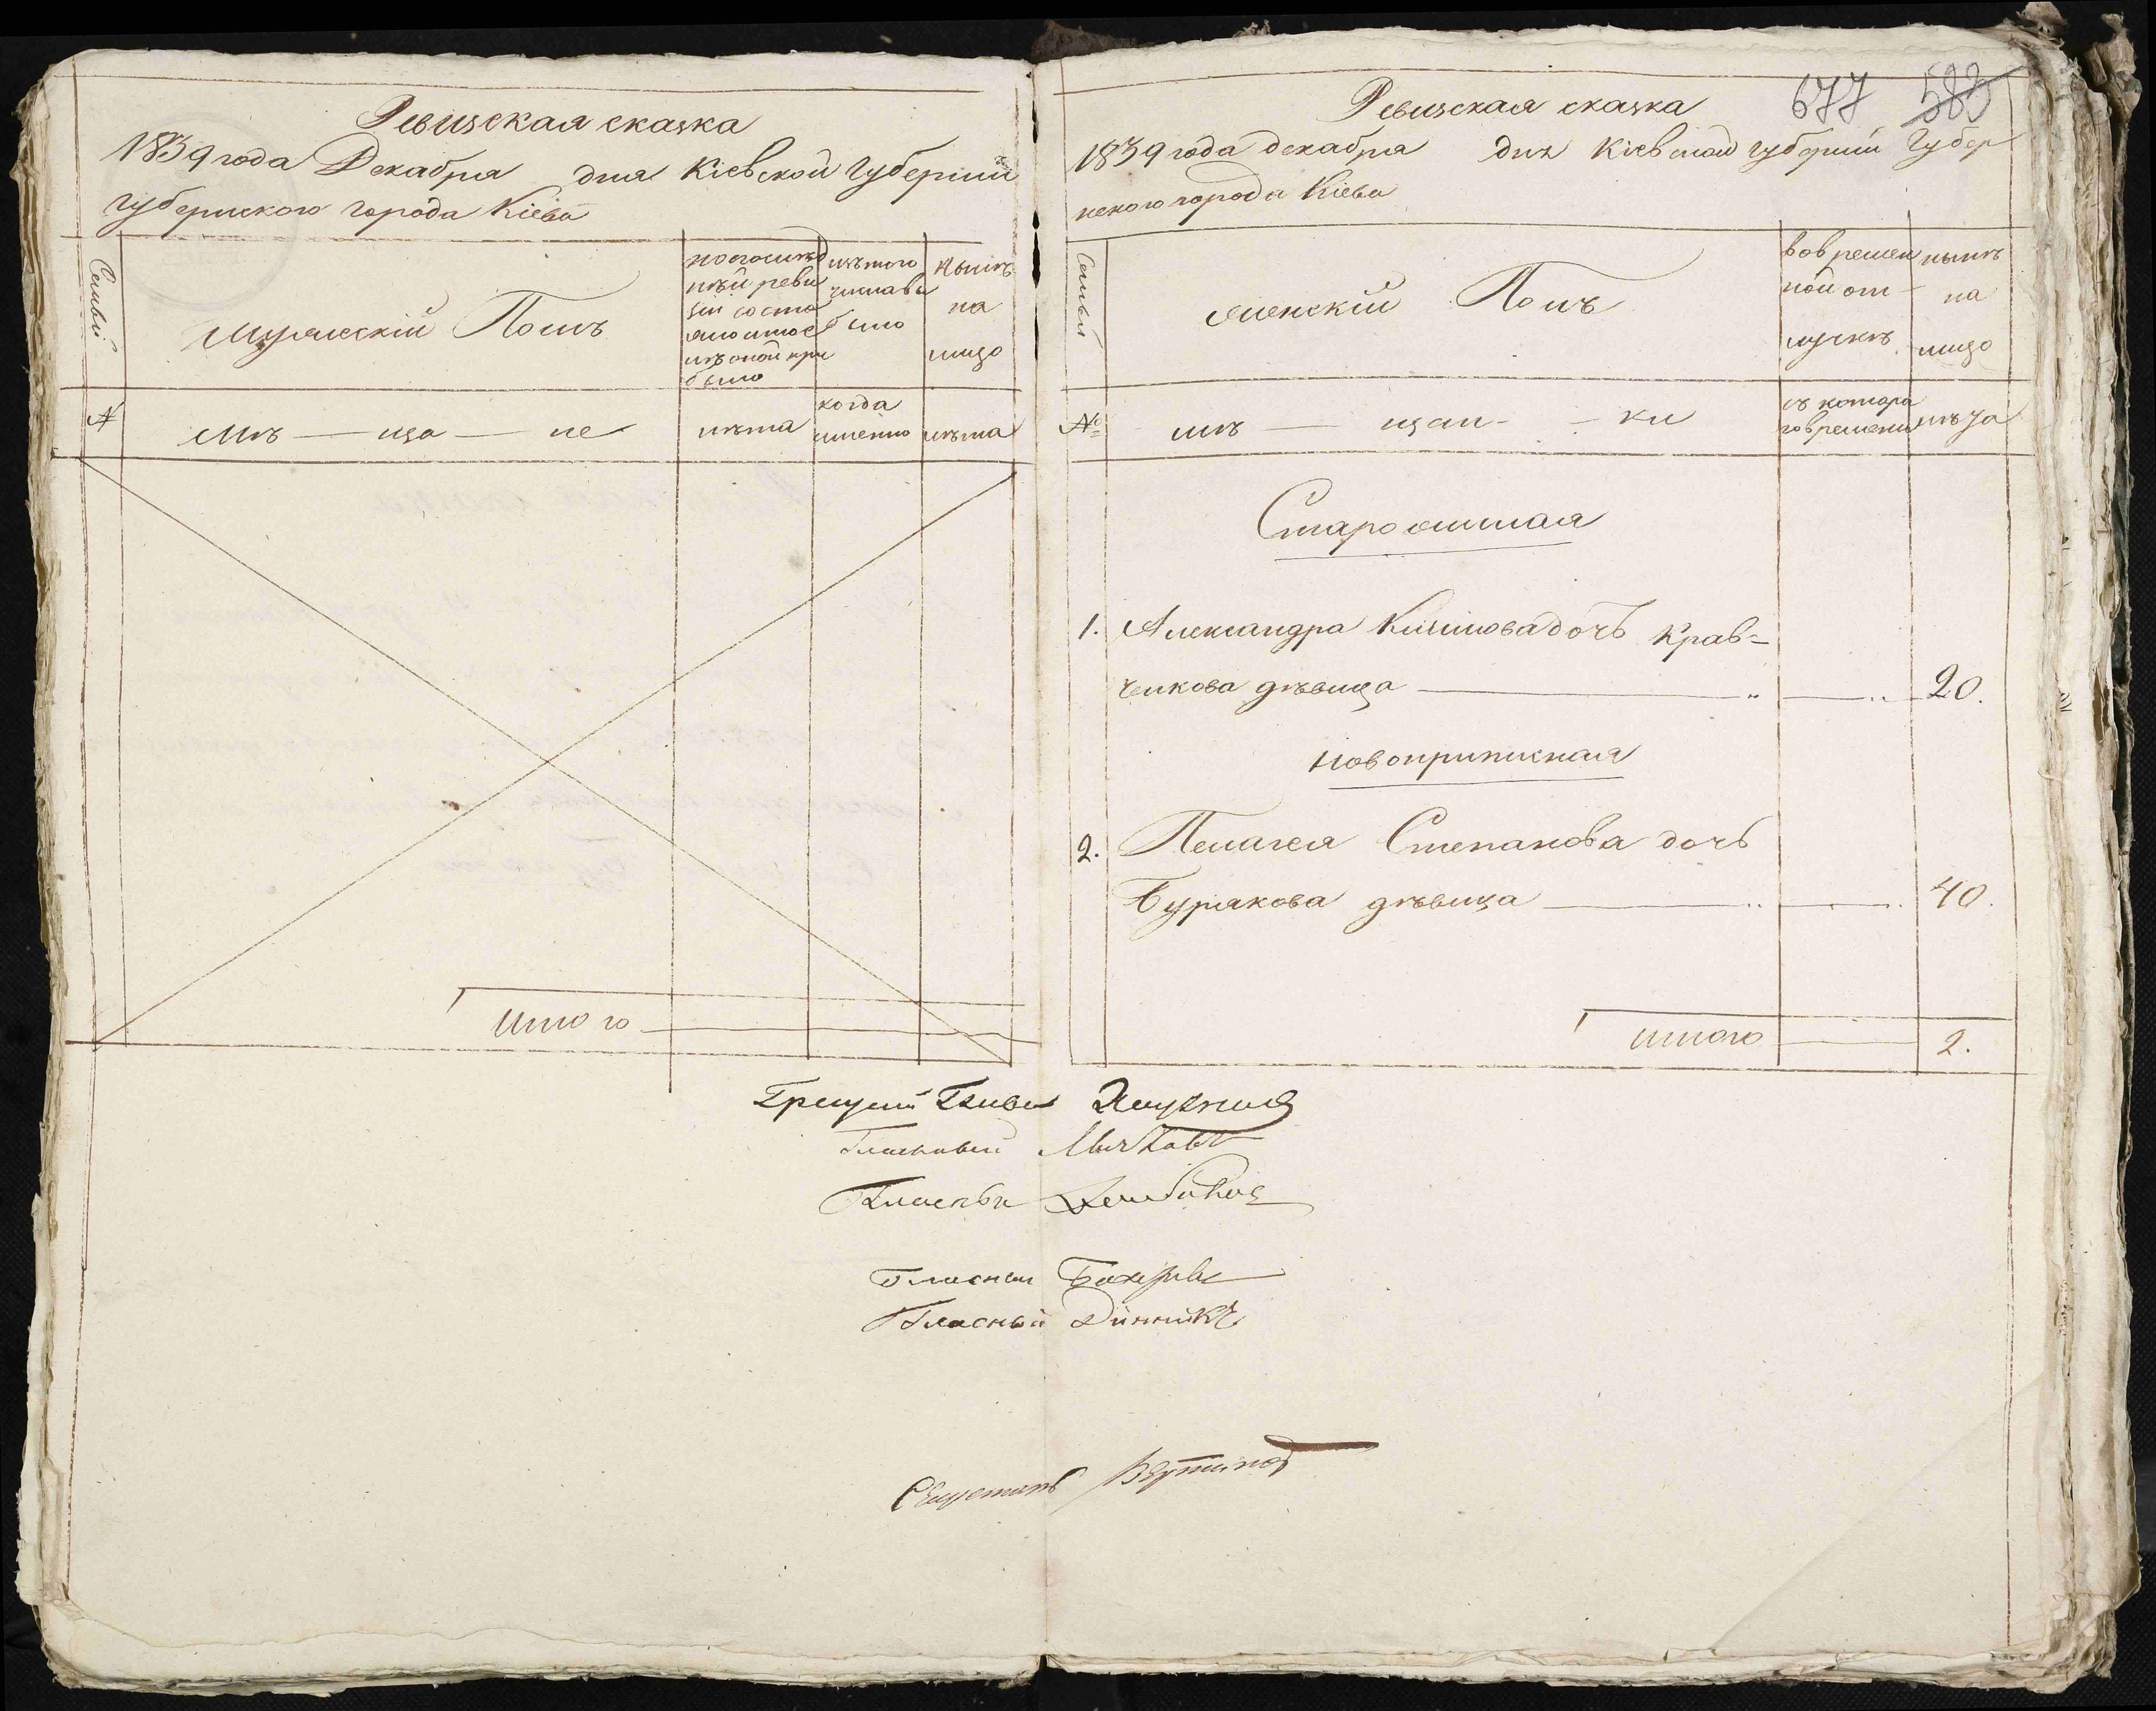 Ревизская сказка
1839 года Декабря дня Кіевской Губерніи
Губернского города Кіева
Семьи
Мужескій Полъ
По послед
ней реви
зіи состо
яло и пос
ле оной при
было
изъ того
числа вы
было
Нынѣ
на
лицо
№
Мѣ — ща — не
лѣта
когда
именно
лѣта
Итого
677 583
Ревизская сказка
1839 года декабря дня Кіевской губерніи Губер
нского города Кіева
Семьи
Женскій Полъ
во времен
ной от-
лучкѣ
нынѣ
на
лицо
№
мѣ — щан - - ки
съ котора
го времени
лѣта
Старожилая
1. Александра Климова дочь Крав=
чикова девица — 20.
Новоприписная
2. Пелагея Степанова дочь
Бурякова девица — 40.
Итого 2.
Гласный
Гласный
Гласный
Гласный Динникъ